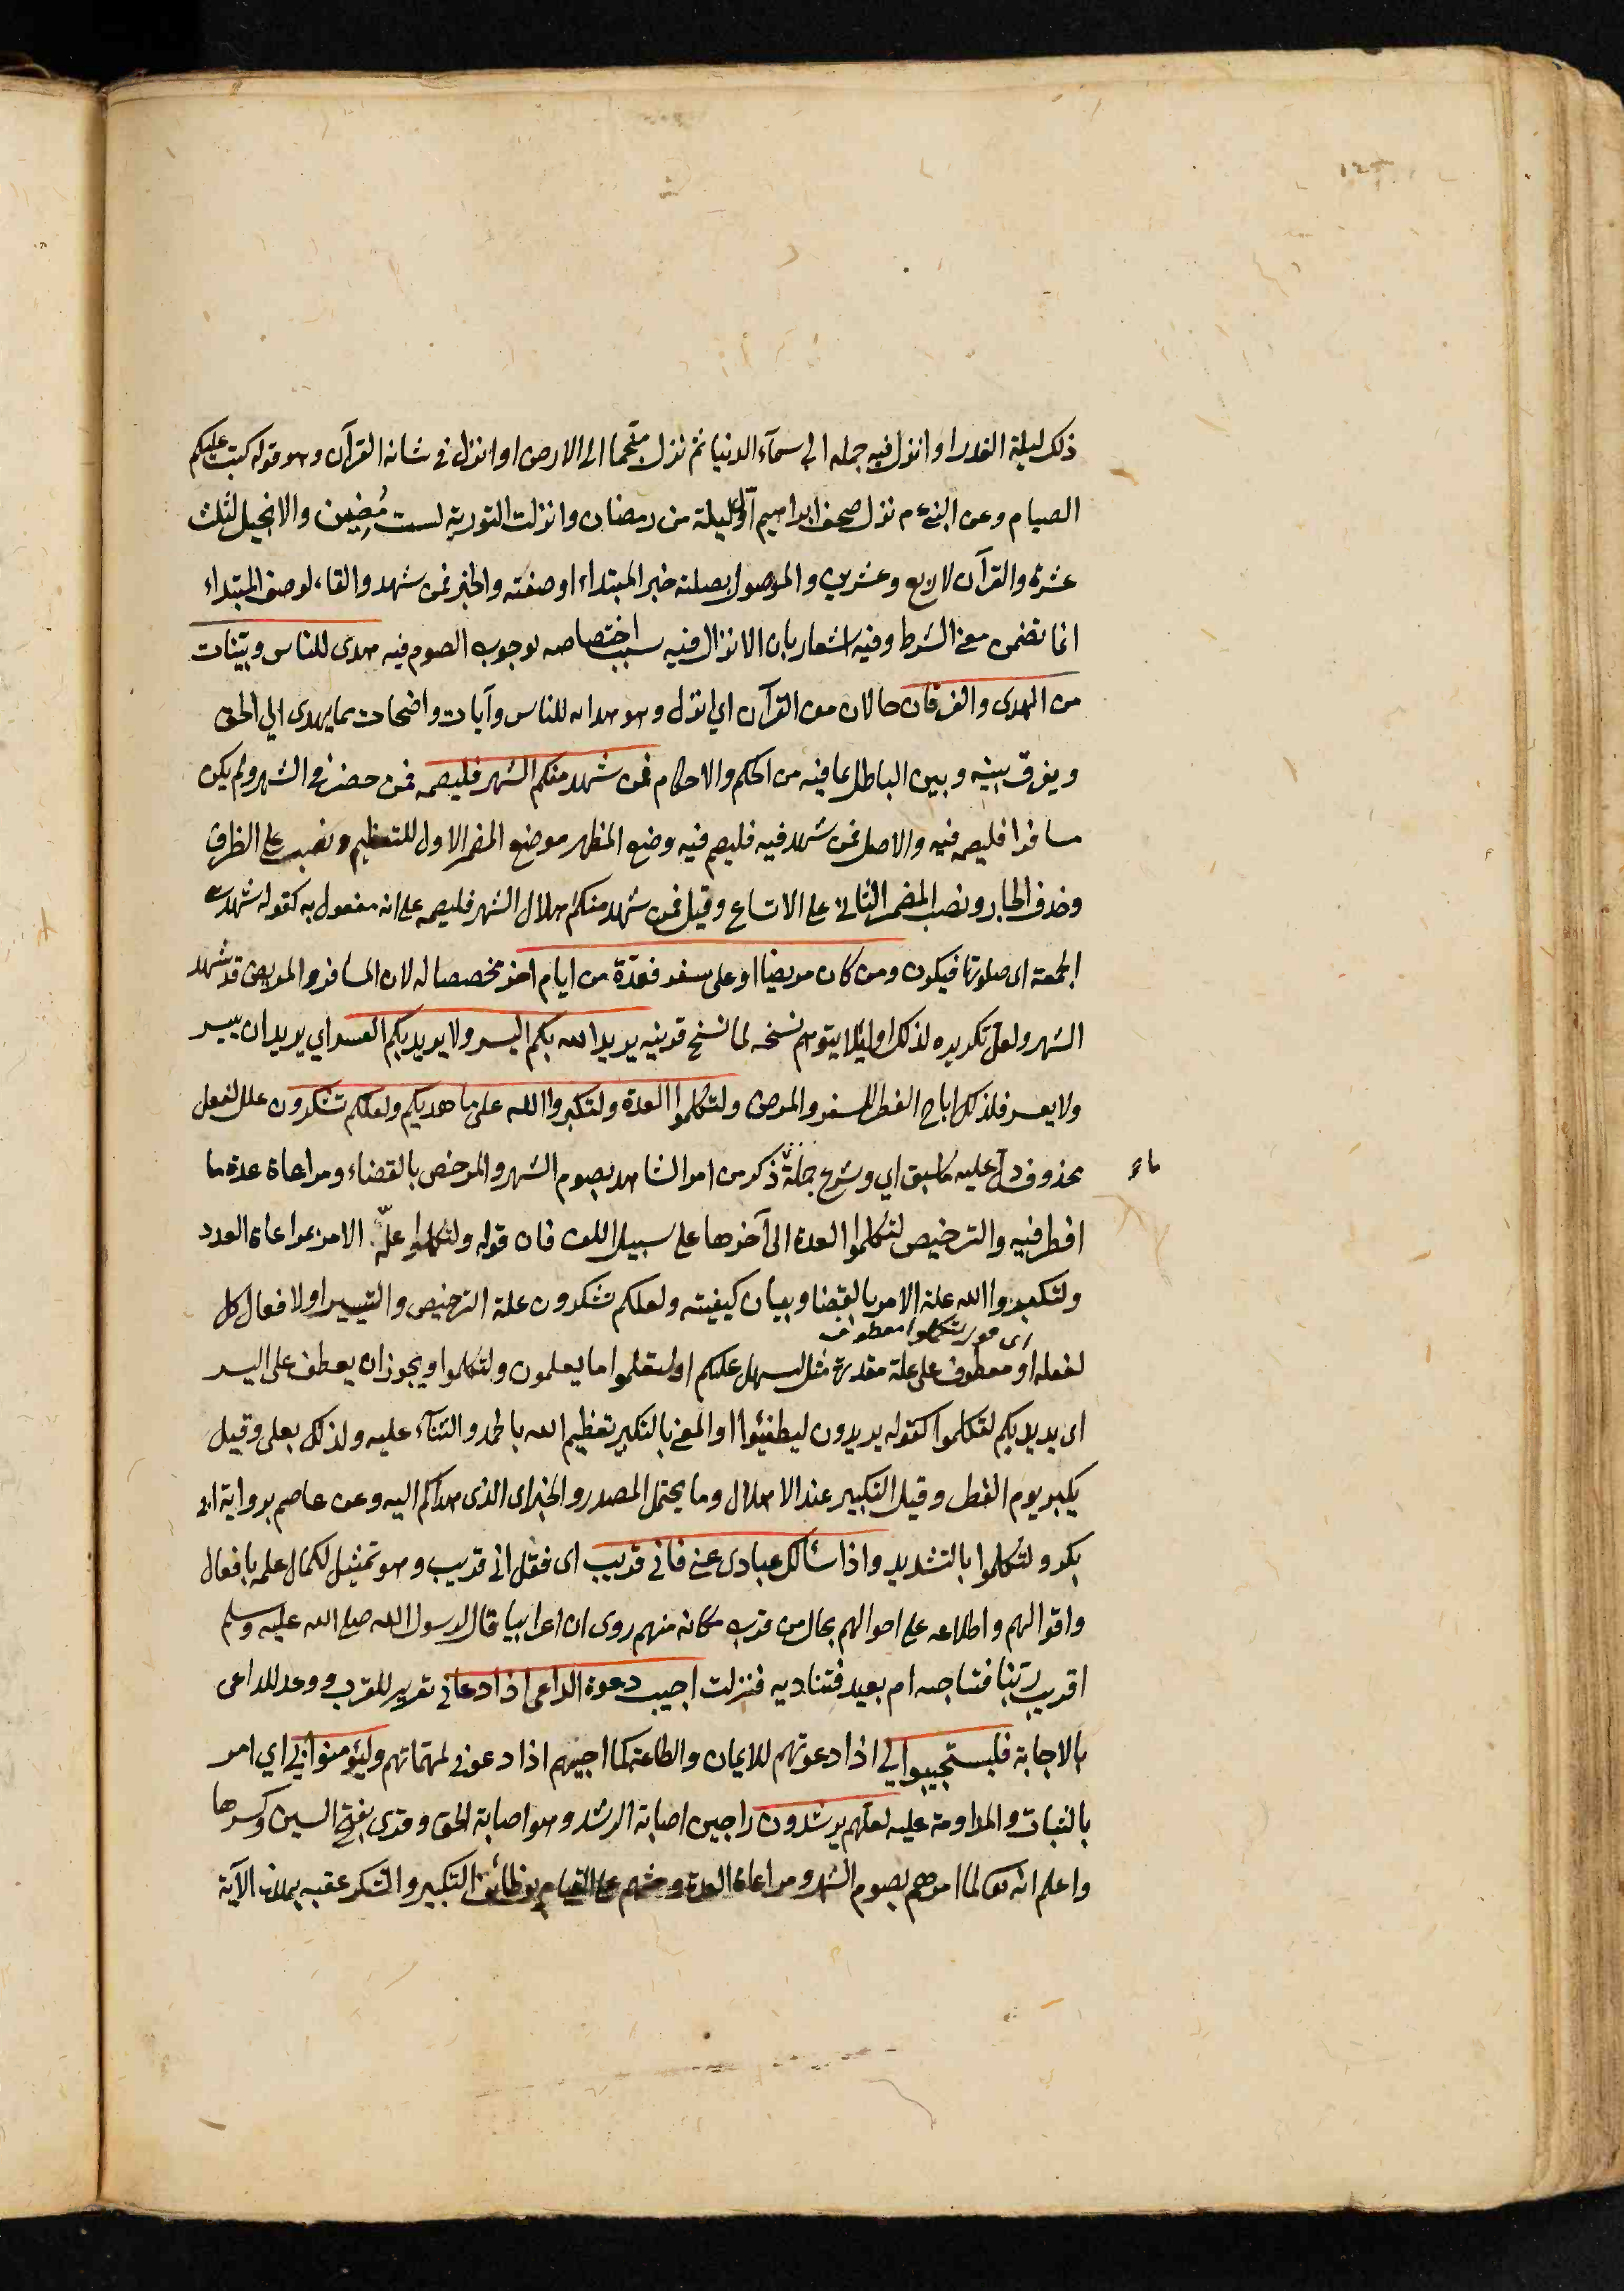 ذلك ليلة القدر او انزل فيه جملة الى سمآء الدنيا ثم نزل منجما الى الارض او انزل في شانه القرآن وهو قوله كتب عليكم
الصيام وعن النبي ءم نزل صحف ابراهيم اول ليلة من رمضان وانزلت التورية لست مضين والانجيل لثلث
عشرة والقرآن لاربع وعشرين والموصول بصلته خبر المبتداء او صفته والخبر فمن شهد والفاء لوصف المبتداء
انما تضمن معنى الشرط وفيه اشعار بان الانزال فيه سبب اختصاصه بوجوب الصوم فيه هدى للناس وبينات
من الهدى والفرقان حالان من القرآن اي انزل وهو هداية للناس وآيات واضحات مما يهدى الي الحق
ويفرق بينه وبين الباطل بما فيه من الحكم والاحكام فمن شهد منكم الشهر فليصمه فمن حضر في الشهر ولم يكن
مسافرا فليصمه فيه والاصل فمن شهد فيه فليصم فيه وضع المظهر موضع المضمر الاول للتعظيم ونصب على الظرف
وحذف الجار ونصب المضمر الثاني على الاتساع وقيل فمن شهد منكم هلال الشهر فليصمه على انه مفعول به كقوله شهدت
الجمعة اى صلوتها فيكون ومن كان مريضا او على سفر فعدة من ايام اخر مخصصا له لان المسافر والمريض قد شهد
الشهر ولعل تكريره لذلك او لئلا يتوهم نسخه كما نسخ قرينه يريد الله بكم اليسر ولا يريد بكم العسر اي يريد ان ييسر
ولا يعسر فلذلك اباح الفطر للسفر والمرض ولتكلموا العدة ولتكبروا الله على ما هديكم ولعلكم تشكرون علل لفعل
محذوف دل عليه ما سبق اي وشرع جملة ذكر من امر الشاهد بصوم الشهر والمرخص بالقضاء ومراعاة عدة ما
ما
افطر فيه والترخيص لتكلموا العدة الى آخرها على سبيل اللف فان قوله ولتكلموا علة الامر بمراعاة العدد
ولتكبروا الله علة الامر بالقضا وبيان كيفيته ولعلكم تشكرون علة الترخيص والتيسير او لافعال كل
لتكلموا معطوف
لفعله او معطوف على علة مقدرة مثل ليسهل عليكم او لتعلموا ما يعلمون ولتكلموا ويجوز ان يعطف على اليسر
اى يريد بكم لتكلموا كقوله يريدون ليطفئوا والمعنى بالتكبير تعظيم الله بالحمد والثنآء عليه ولذلك بعلى وقيل
يكبر يوم الفطر وقيل التكبير عند الاهلال وما يحتمل المصدر والخبر اى الذى هداكم اليه وعن عاصم برواية ابى
بكر ولتكلموا بالتشديد واذا سألك عبادى عنى فانى قريب اى فقل انى قريب وهو تمثيل لكمال علمه بافعال
واقوالهم واطلاعه على احوالهم بحال من قرب مكانه منهم روى ان اعرابيا قال لرسول الله صلى الله عليه وسلم
اقريب ربنا فنناجيه ام بعيد فنناديه فنزلت اجيب دعوة الداعى اذا دعانى تقرير للقرب ووعد للداعى
بالاجابة فليستجيبوا لي اذا دعوتهم للايمان والطاعة كما اجيبهم اذا دعونى لمهماتهم وليؤمنوا بي اي امر
بالثبات والمداومة عليه لعلهم يرشدون راجين اصابة الرشد وهو اصابة الحق وقرى بفتح السين وكسرها
واعلم انه تعالى لما امرهم بصوم الشهر ومراعاة العدة وحثهم على القيام بوظائف التكبير والشكر عقبه بهذه الآية